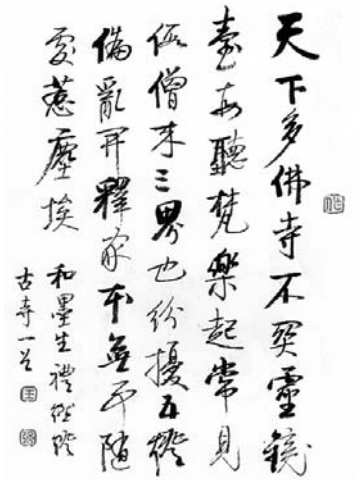 天下多佛寺不靈鏡
臺每聽梵樂起常見
假僧來三界也紛擾五燈
偏亂開釋家本無干隨
處惹塵埃
和墨生禮
古寺一首